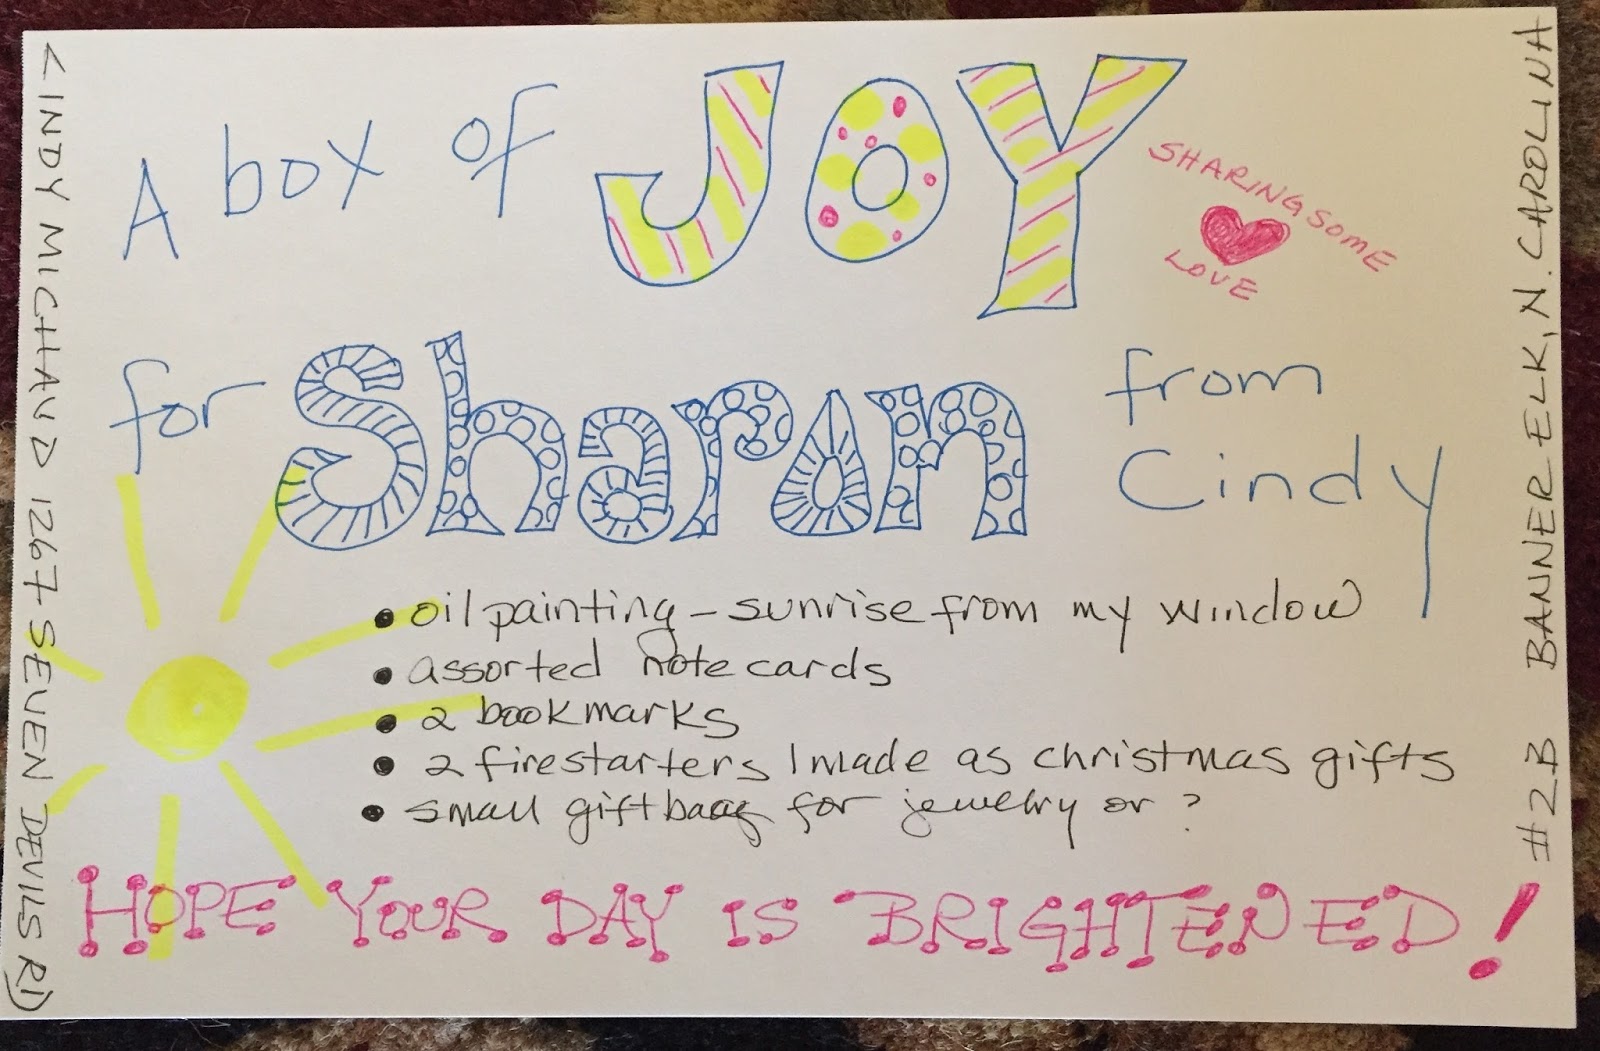 A box of JOY
SHARING SOME
LOVE
for Sharon from
Cindy
• oil painting – sunrise from my window
• assorted note cards
• 2 bookmarks
• 2 firestarters I made as christmas gifts
• small gift bag for jewelry or ?
HOPE YOUR DAY IS BRIGHTENED!
CINDY MICHAUD 1267 SEVEN DEVILS RD
#2B BANNER ELK, N. CAROLINA